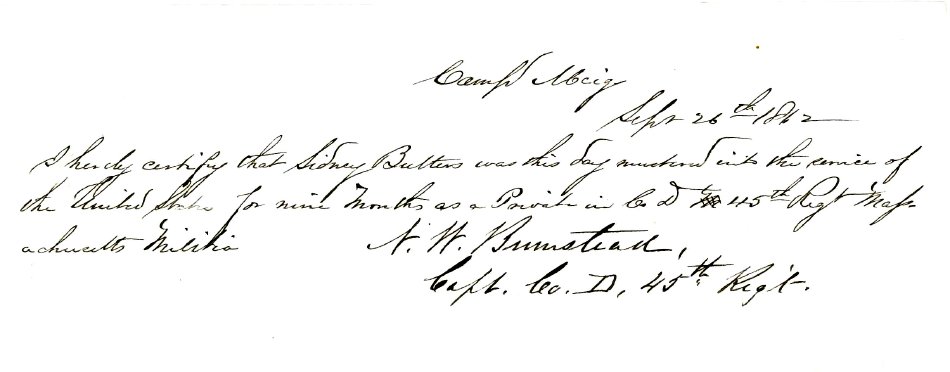 Camp Meigs
Sept 26th 1862
I hereby certify that Sidney Butters was this day mustered into the service of
the United States for nine Months as a Private in Co D 45th Regt Mass
achusetts Militia
N. W. Bumstead,
Capt. Co. D, 45th Reg't.